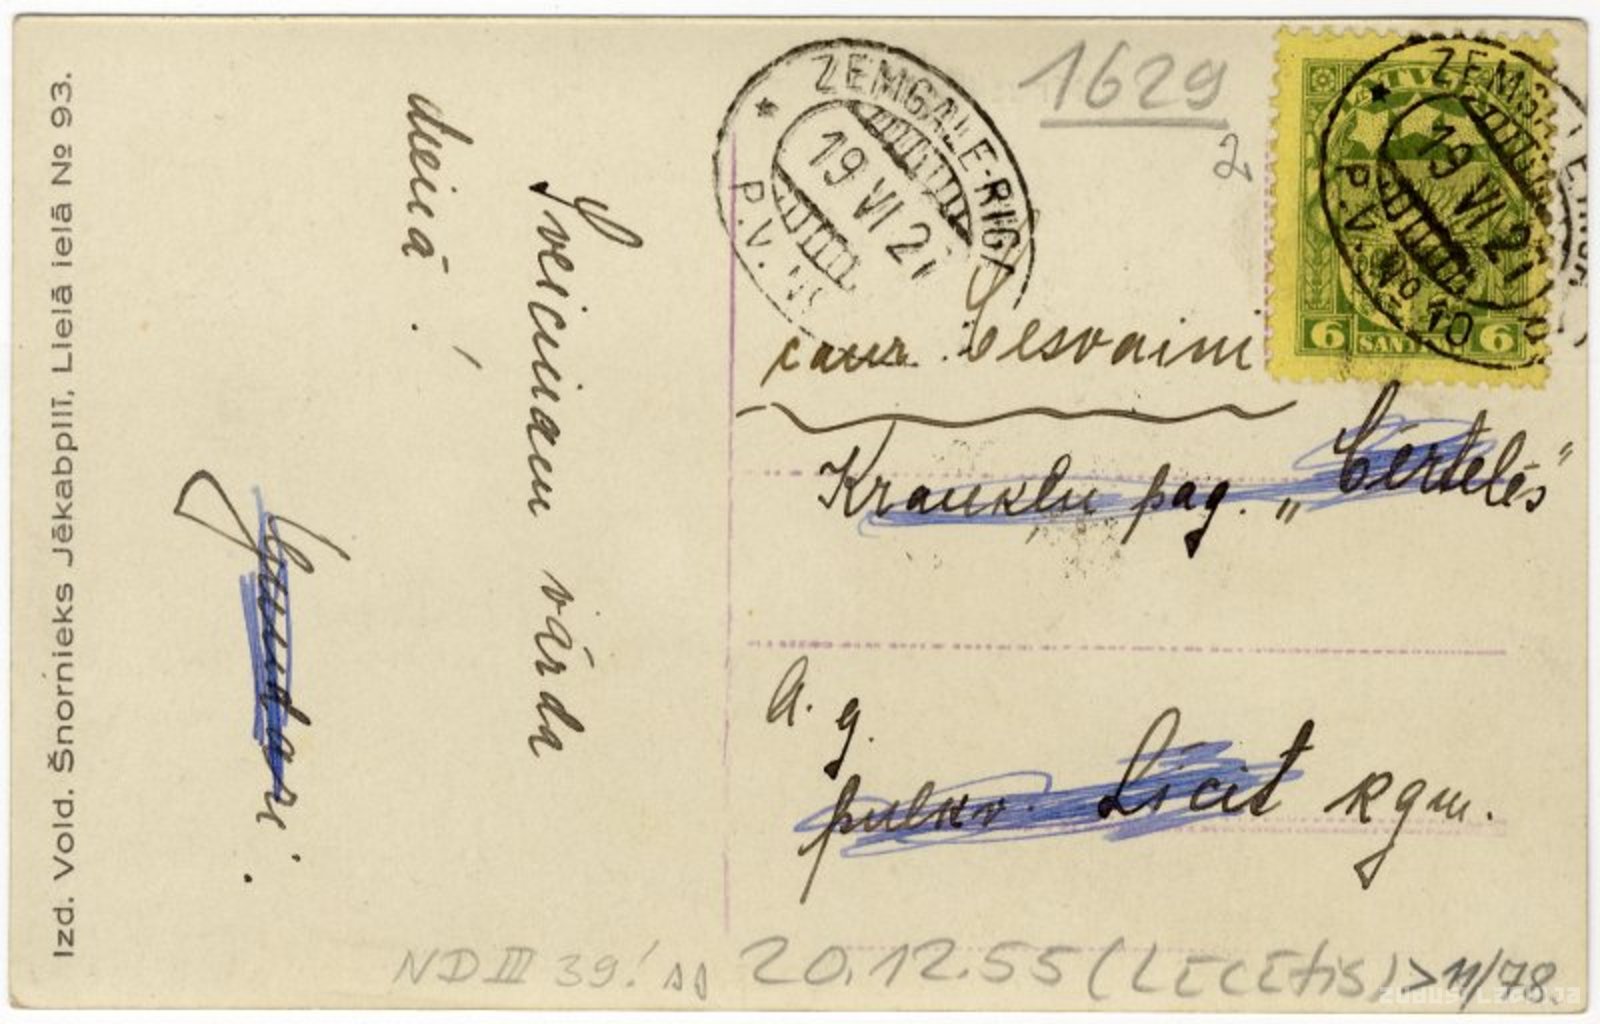 Izd. Vold. Šnornieks Jēkabpilī, Lielā ielā № 93.
Sveicinam vārda
dienā!
ZEMGALE-RIGA
19 VI 2
P.V.
1629
2
LATVIJA
6 SANTIMI 6
ZEMGALE-RIGA
19 VI 2
P.V. № 10
caur Cesvaini
Kraukļu pag. „Cērtelēs"
A. g.
pulkv. Līcīt kgm.
20.12.55 (LECETIS) > 11/78.
ND III 39!